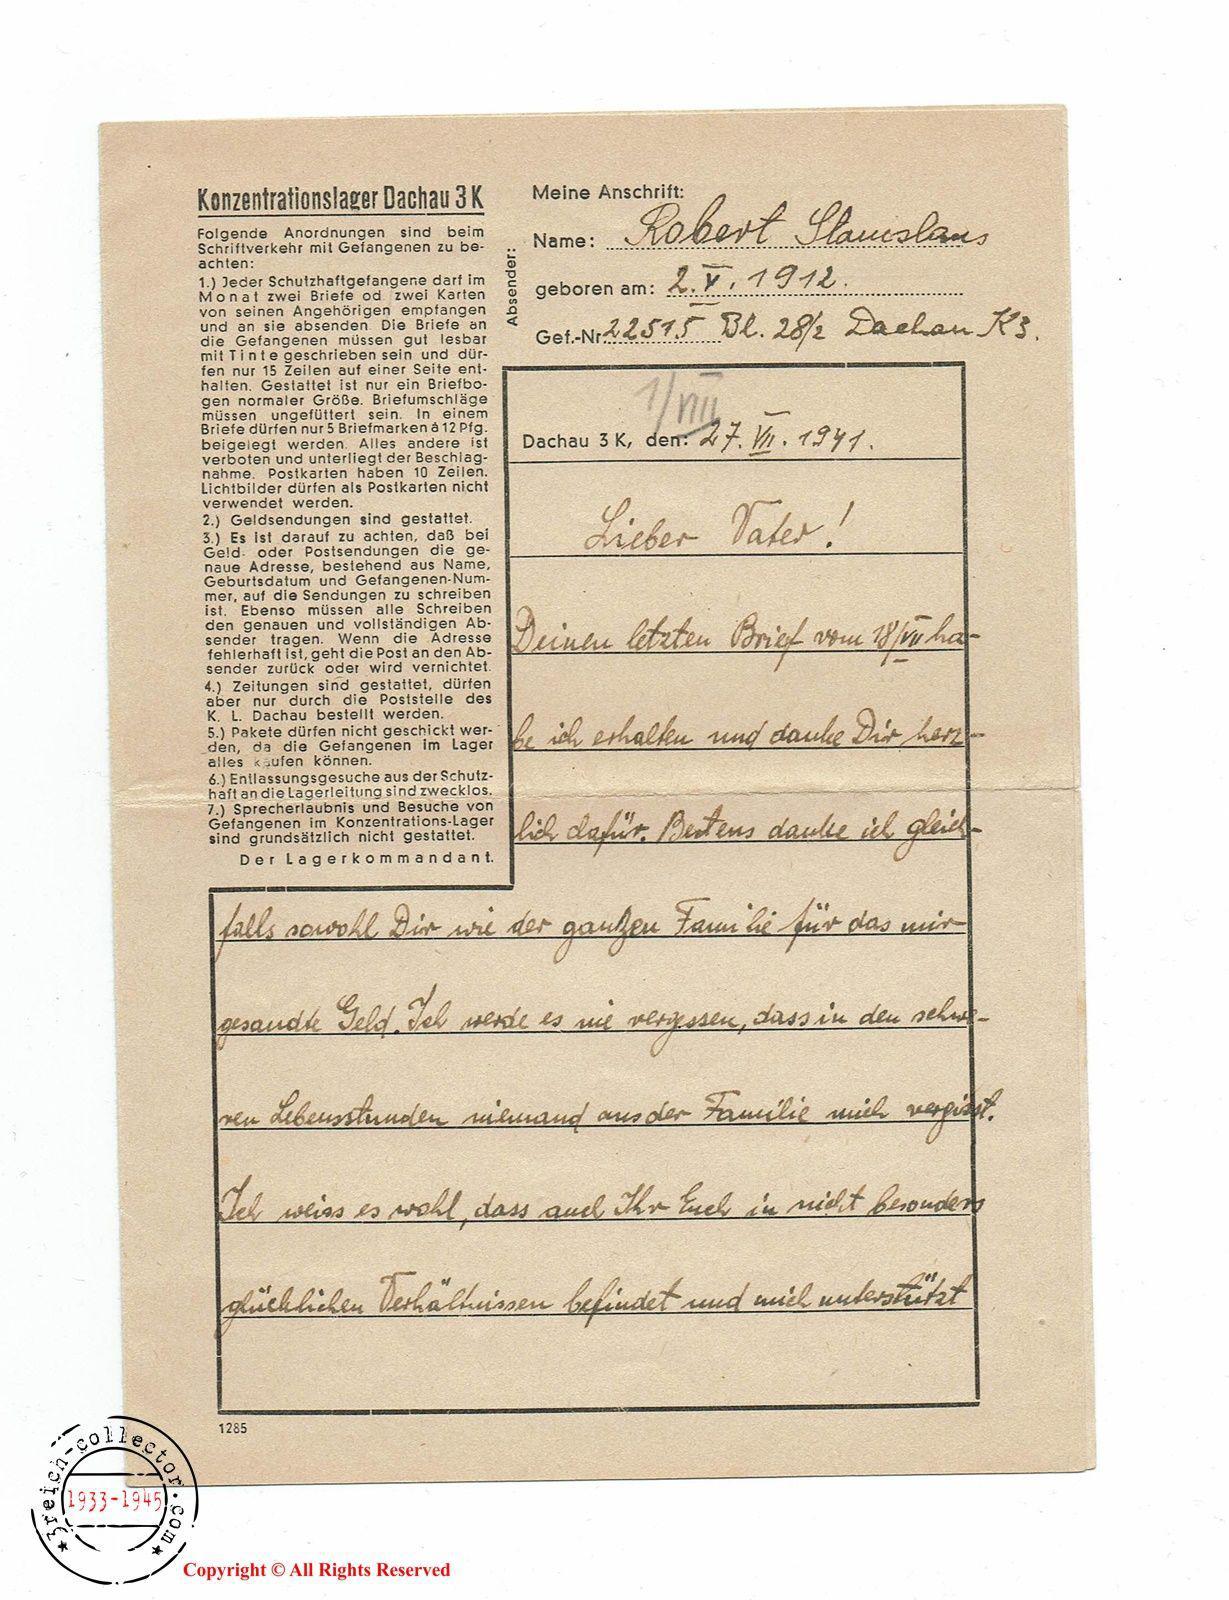 Konzentrationslager Dachau 3 K
Folgende Anordnungen sind beim
Schriftverkehr mit Gefangenen zu be-
achten:
1.) Jeder Schutzhaftgefangene darf im
Monat zwei Briefe od zwei Karten
von seinen Angehörigen empfangen
und an sie absenden Die Briefe an
die Gefangenen müssen gut lesbar
mit Tinte geschrieben sein und dür-
fen nur 15 Zeilen auf einer Seite ent-
halten. Gestattet ist nur ein Briefbo-
gen normaler Größe. Briefumschläge
müssen ungefüttert sein. In einem
Briefe dürfen nur 5 Briefmarken à 12 Pfg.
beigelegt werden. Alles andere ist
verboten und unterliegt der Beschlag-
nahme. Postkarten haben 10 Zeilen.
Lichtbilder dürfen als Postkarten nicht
verwendet werden.
2.) Geldsendungen sind gestattet.
3.) Es ist darauf zu achten, daß bei
Geld- oder Postsendungen die ge-
naue Adresse, bestehend aus Name,
Geburtsdatum und Gefangenen-Num-
mer, auf die Sendungen zu schreiben
ist. Ebenso müssen alle Schreiben
den genauen und vollständigen Ab-
sender tragen. Wenn die Adresse
fehlerhaft ist, geht die Post an den Ab-
sender zurück oder wird vernichtet.
4.) Zeitungen sind gestattet, dürfen
aber nur durch die Poststelle des
K. L. Dachau bestellt werden.
5.) Pakete dürfen nicht geschickt wer-
den, da die Gefangenen im Lager
alles kaufen können.
6.) Entlassungsgesuche aus der Schutz-
haft an die Lagerleitung sind zwecklos.
7.) Sprecherlaubnis und Besuche von
Gefangenen im Konzentrations-Lager
sind grundsätzlich nicht gestattet.
Der Lagerkommandant.
Absender:
Meine Anschrift:
Name: Robert Stanislaus
geboren am: 2. V. 1912.
Gef.-Nr 22515 Bl. 28/2 Dachau K3.
1/VIII
Dachau 3 K, den: 27. VII. 1941.
Lieber Vater!
Deinen letzten Brief vom 18/VII ha-
be ich erhalten und danke Dir herz-
lich dafür. Bestens danke ich gleich-
falls sowohl Dir wie der ganzen Familie für das mir
gesandte Geld. Ich werde es nie vergessen, dass in den schwe-
ren Lebensstunden niemand aus der Familie mich vergisst.
Ich weiss es wohl, dass auch Ihr Euch in nicht besonders
glücklichen Verhältnissen befindet und mich unterstützt
1285
3reich-collector.com
1933-1945
Copyright © All Rights Reserved